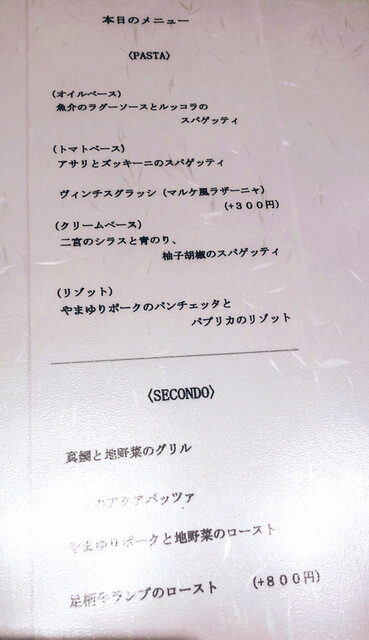 本日のメニュー
〈PASTA〉
(オイルベース)
魚介のラグーソースとルッコラの
スパゲッティ
(トマトベース)
アサリとズッキーニのスパゲッティ
ヴィンチスグラッシ (マルケ風ラザーニャ)
(+300円)
(クリームベース)
二宮のシラスと青のり、
柚子胡椒のスパゲッティ
(リゾット)
やまゆりポークのパンチェッタと
パプリカのリゾット
〈SECONDO〉
真鯛と地野菜のグリル
のアクアパッツァ
やまゆりポークと地野菜のロースト
足柄牛ランプのロースト (+800円)